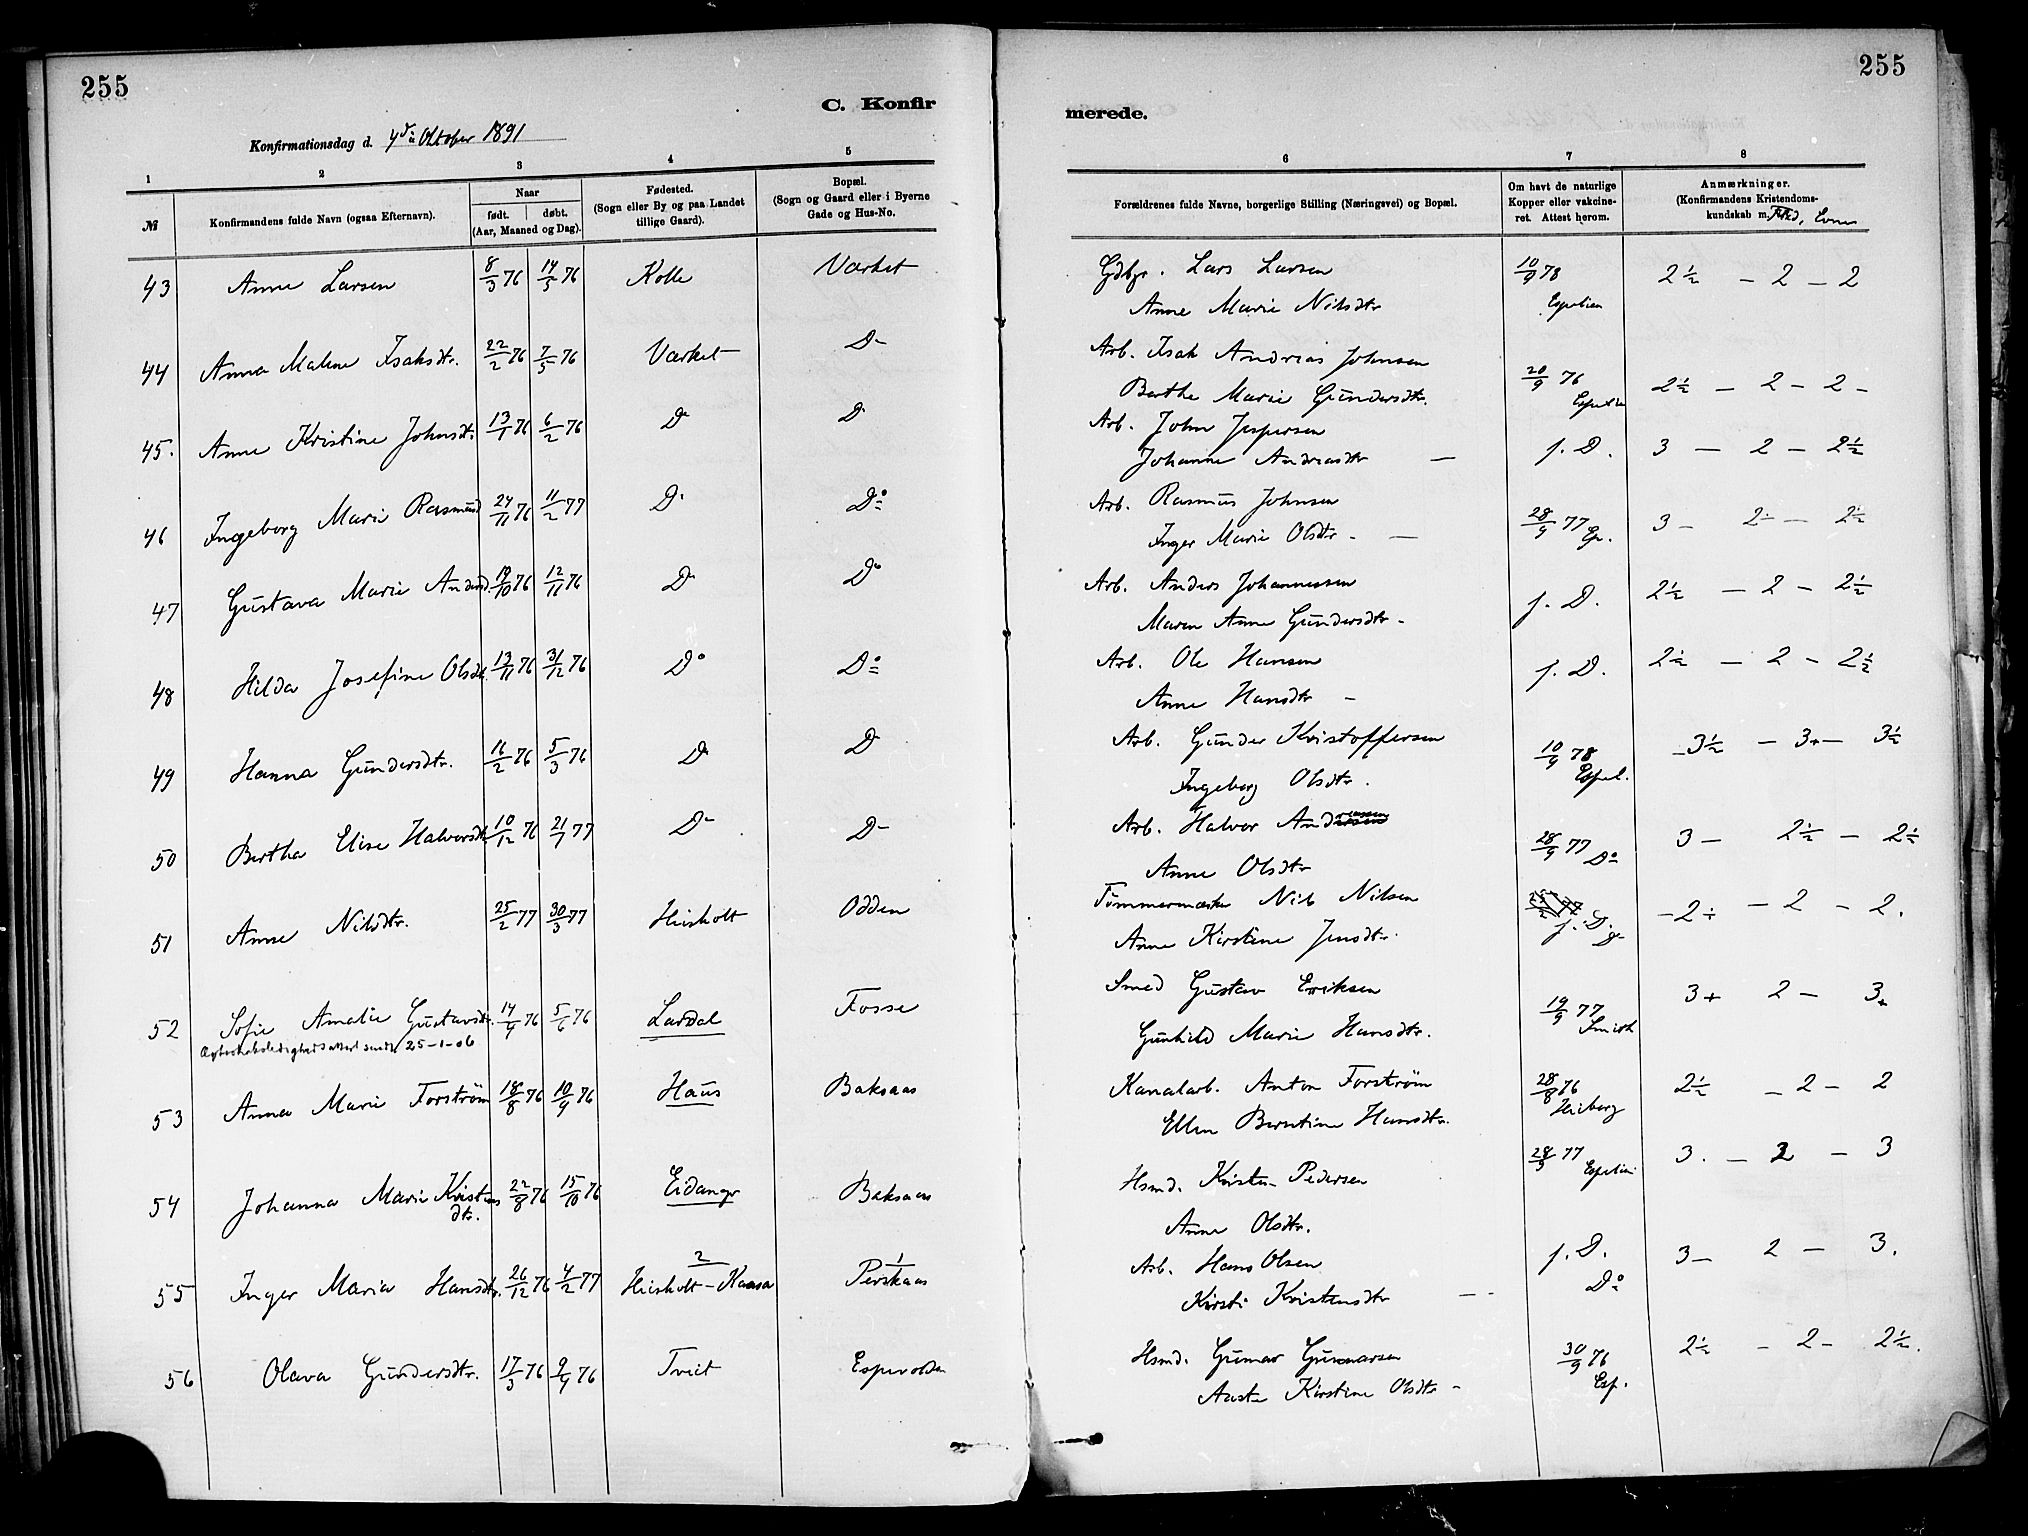 255
255
C. Konfir
merede.
Konfirmationsdag d. 4de Oktober 1891
1 2 3 4 5
6 7 8
№
Konfirmandens fulde Navn (ogsaa Efternavn).
Naar
født. døbt.
(Aar, Maaned og Dag).
Fødested.
(Sogn eller By og paa Landet
tillige Gaard).
Bopæl.
(Sogn og Gaard eller i Byerne
Gade og Hus-No.
Forældrenes fulde Navne, borgerlige Stilling (Næringsvei) og Bopæl.
Om havt de naturlige
Kopper eller vakcine-
ret. Attest herom.
Anmærkninger.
(Konfirmandens Kristendoms-
kundskab m. Flid, Evne
43 Anne Larsen 8/3 76 14/5 76 Kolle Værket
Gdbr. Lars Larsen 10/9 78 2½ – 2 – 2
Anne Marie Nilsdtr Espelien
44 Anna Malene Isaksdtr. 22/2 76 7/5 76 Værket D-
Arb. Isak Andreas Johnsen 20/9 76 2½ – 2 – 2 –
Berthe Marie Gundersdtr.
45. Anne Kristine Johnsdtr. 13/1 76 6/2 76 D D
Arb. John Jespersen
Johanne Andreasdtr — f. D. 3 — 2 – 2½
46 Ingeborg Marie Rasmusd 24/11 76 11/2 77 D. Do
Arb. Rasmus Johnsen 28/9 77 Esp. 3 – 2÷ — 2½
Inger Marie Olsdtr. —
47 Gustava Marie Andersd. 19/10 76 12/11 76 D Do
Arb. Anders Johannessen f. D. 2½ — 2 – 2½
Maren Anne Gundersdtr.
48 Hilda Josefine Olsdtr. 13/11 76 31/12 76 Do Do
Arb. Ole Hansen f. D. 2½ — 2 – 2½
Anne Hansdtr –
49 Hanna Gundersdtr. 16/2 76 5/3 76 D D
Arb. Gunder Kristoffersen 10/9 78 3½ — 3+ – 3½
Ingeborg Olsdtr. Espel.
50 Bertha Elise Halvorsdtr. 10/12 76 21/1 77 D- D-
Arb. Halvor Andreassen 28/9 77 Do 3 – 2½ – 2½
Anne Olsdtr
51 Anne Nilsdtr. 25/2 77 30/3 77 Heisholt Odden
Tømmermester Nils Nilsen f. D. 2÷ – 2 – 2.
Anne Kirstine Jensdtr.
52 Sofie Amalie Gustavsdtr. 14/4 76 5/6 76 Lardal Fosse
Ægteskabsledighedsattest sendt 25-1-06
Smed Gustav Eriksen 19/9 77 3+ 2 – 3+
Gunhild Marie Hansdtr. Smith
53 Anna Marie Forstrøm 18/8 76 10/9 76 Haus Baksaas
Kanalarb. Anton Forstrøm 28/8 76 2½ – 2 – 2
Ellen Berntine Hansdtr. Heiberg
54 Johanna Marie Kristens 22/8 76 15/10 76 Eidanger Baksaas
dtr.
Hsmd. Kristen Pedersen 28/9 77 Espelien 3. – 2 – 3
Anne Olsdtr.
2 1
55 Inger Maria Hansdtr. 26/12 76 4/2 77 Heisholt – Kaasa Perskaas
Arb. Hans Olsen f. D. 3 – 2 – 3.
Kirsti Kristensdtr Do
56 Olava Gundersdtr. 17/3 76 9/4 76 Tveit Espevolden
Hsmd. Gunnar Gunnarsen 30/9 76 2½ – 2 – 2½.
Aaste Kirstine Olsdtr – Esp.